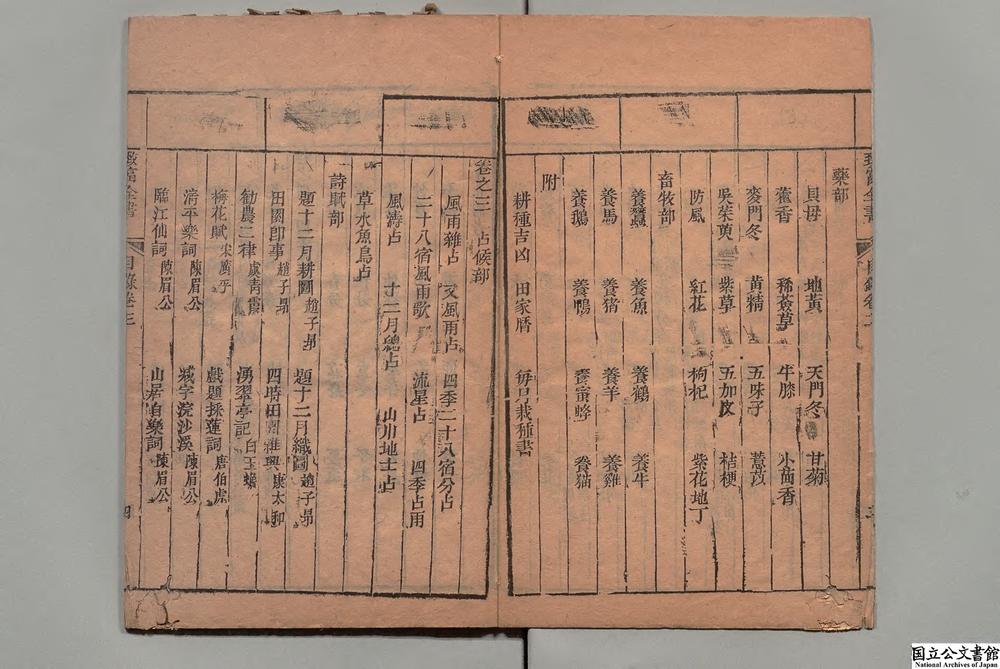 致富全書 目錄卷二
藥部
貝母 地黃 天門冬 甘菊
藿香 稀薟草 牛膝 小茴香
麥門冬 黃精 五味子 薏苡
吳茱萸 紫草 五加皮 桔梗
防風 紅花 枸杞 紫花地丁
畜牧部
養蠶 養魚 養鶴 養牛
養馬 養猪 養羊 養雞
養鵝 養鴨 養蜜蜂 養猫
附
耕種吉凶 田家曆 每月栽種書
卷之三 占候部
風雨雜占 又風雨占 四季二十八宿分占
二十八宿風雨歌 流星占 四季占雨
風濤占 十二月總占 山川地土占
草水魚鳥占
詩賦部
題十二月耕圖 趙子昂 題十二月織圖 趙子昂
田園卽事 趙子昂 四時田園雜興 康太和
勧農二律 虞靑霞 湧翠亭記 白玉蟾
梅花賦 宋廣平 戲題採蓮詞 唐伯虎
淸平樂詞 陳眉公 浣沙溪 陳眉公
臨江仙詞 陳眉公 山居自樂詞 陳眉公
致富全書 目錄卷三 四
国立公文書館
National Archives of Japan